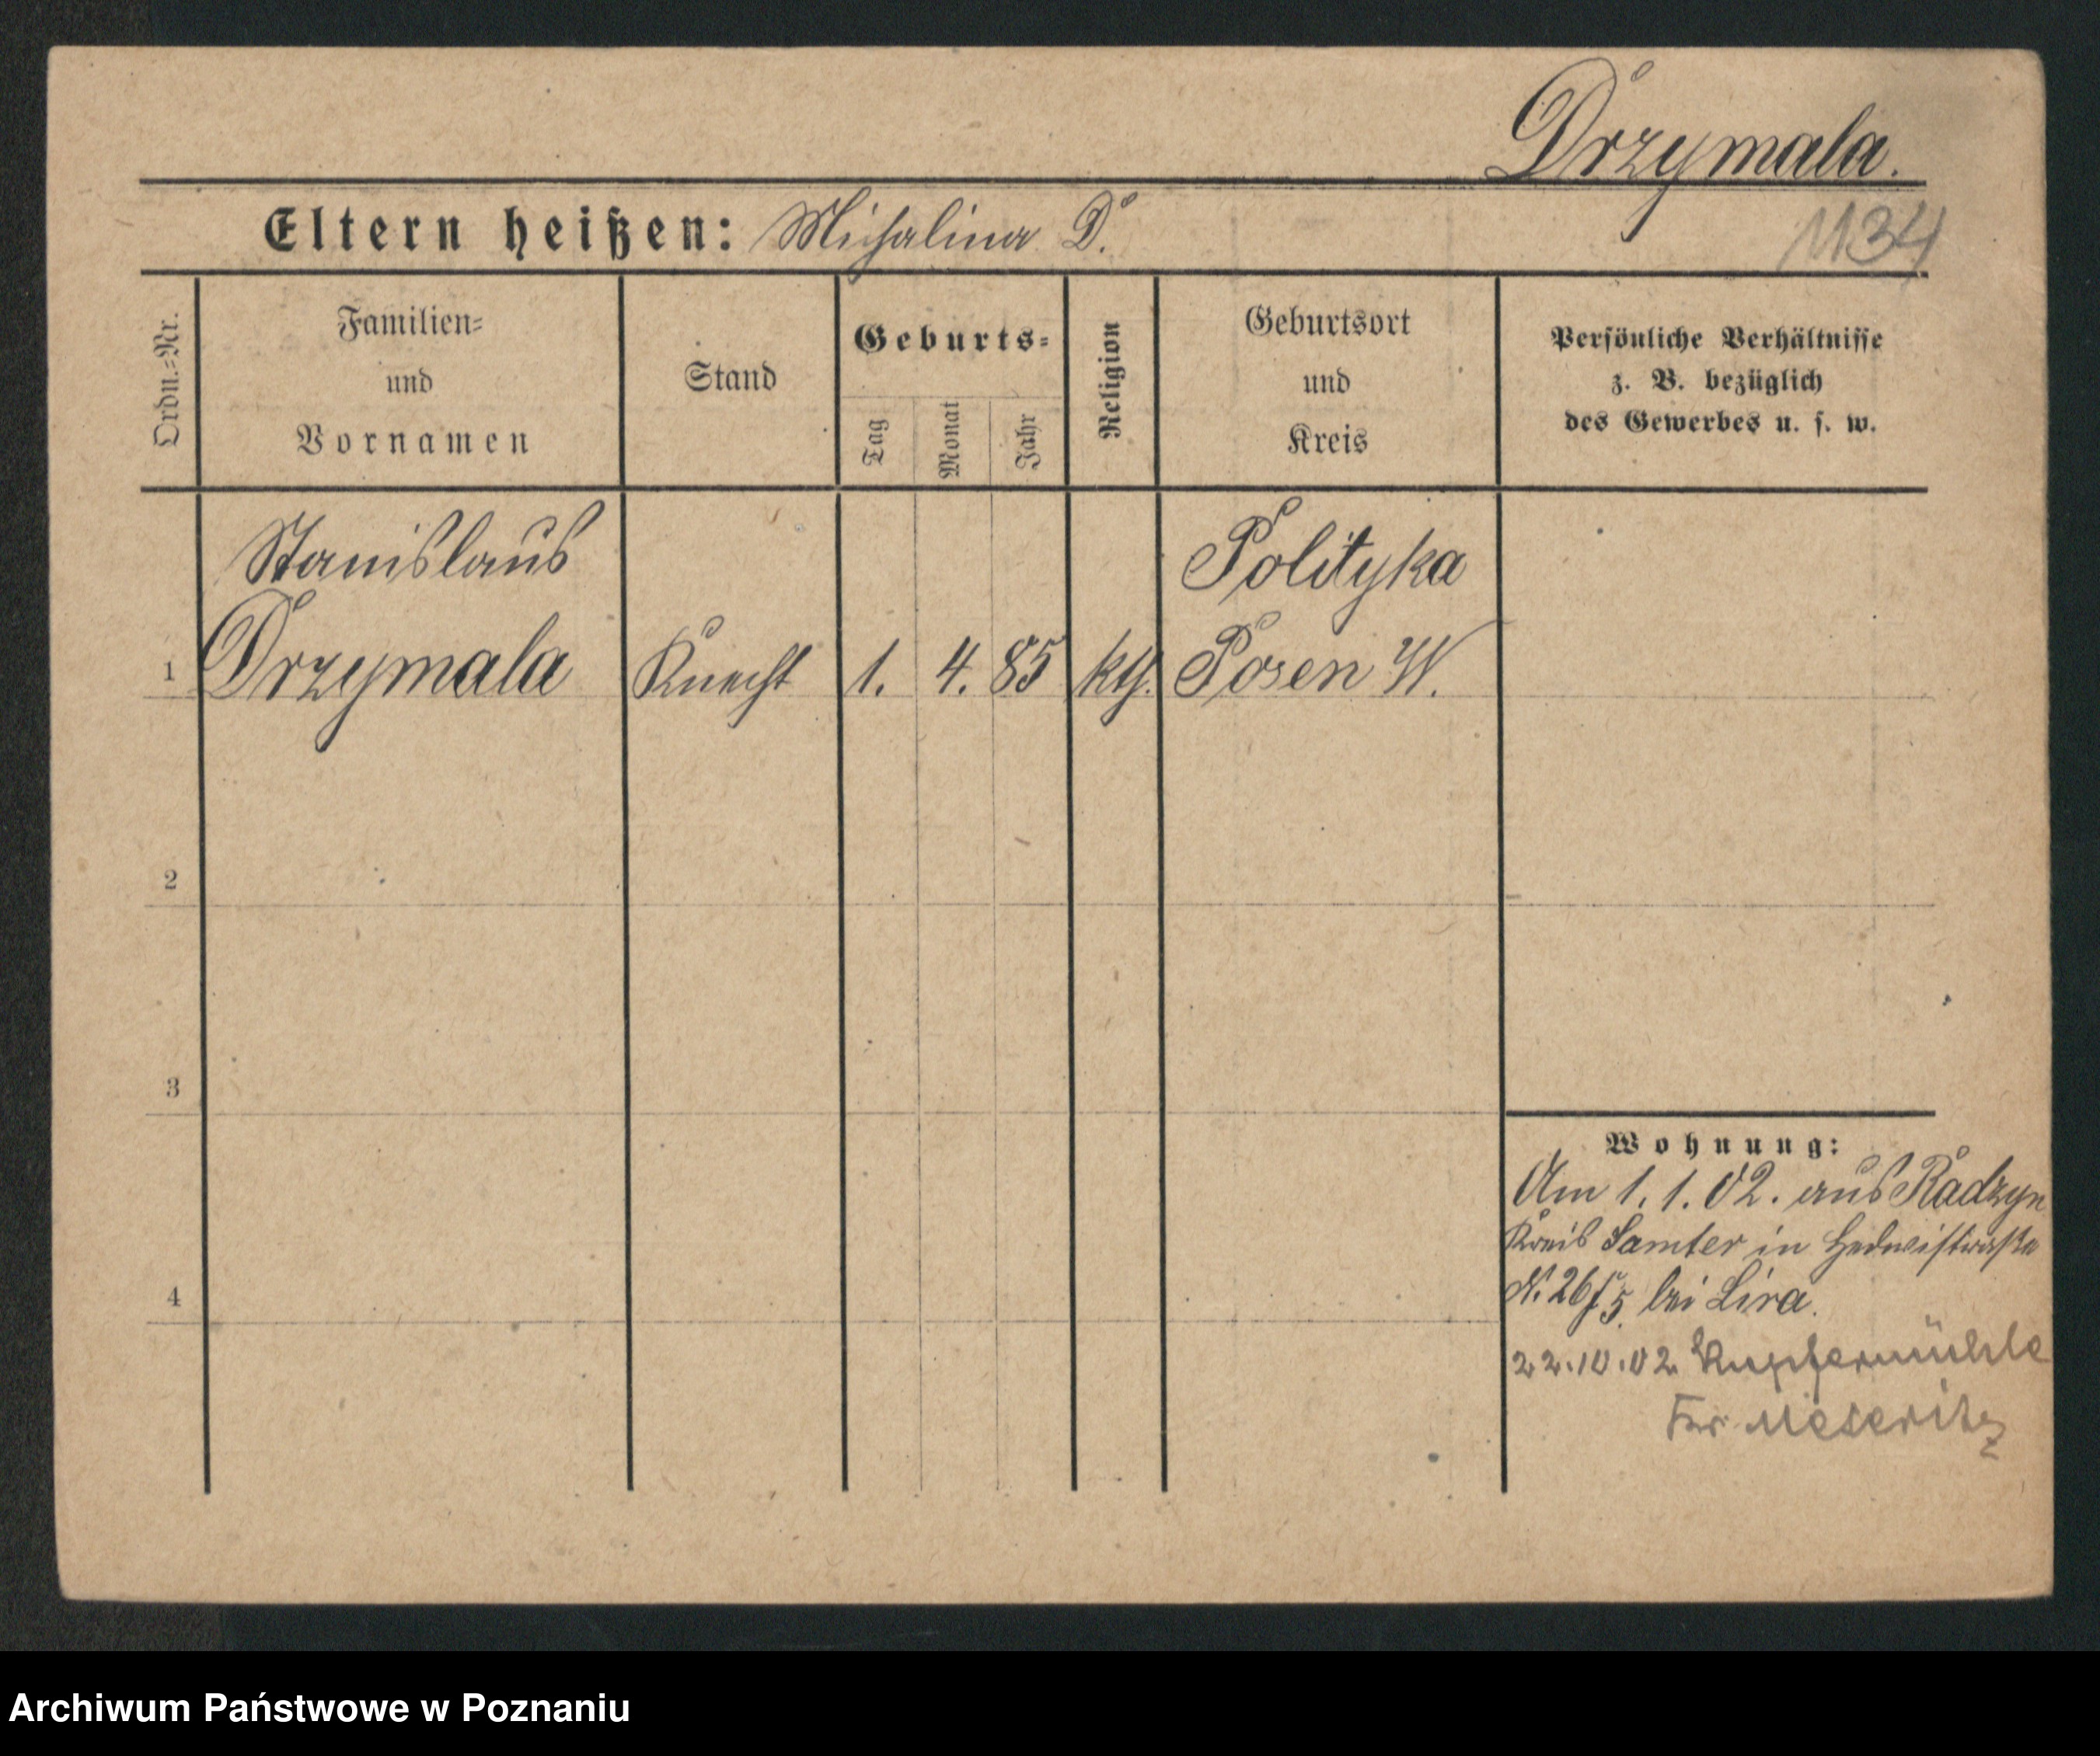 Drzymala.
1134
Eltern heißen: Michalina D.
Ordn.=Nr.
Familien=
und
Vornamen
Stand
Geburts=
Tag
Monat
Jahr
Religion
Geburtsort
und
Kreis
Persönliche Verhältnisse
z. B. bezüglich
des Gewerbes u. s. w.
Stanislaus
Polityka
1 Drzymala Knecht 1. 4. 85 kth. Posen W.
2
3
Wohnung:
Am 1. 1. 02. aus Radzyn
Kreis Samter in
4
N. 26 bei Lira.
22.10.02 Kupfermühle
Meseritz
Archiwum Państwowe w Poznaniu